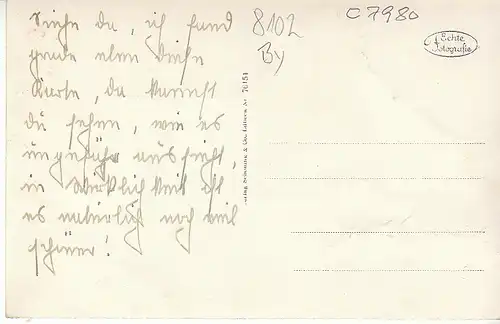 Siehe da, ich fand
grade eben diese
Karte, da kannst
du sehen, wie es
ungefähr aussieht,
in Wirklichkeit ist
es natürlich noch viel
schöner!
8102
By
C7980
Echte
Fotografie
Nr. 76154